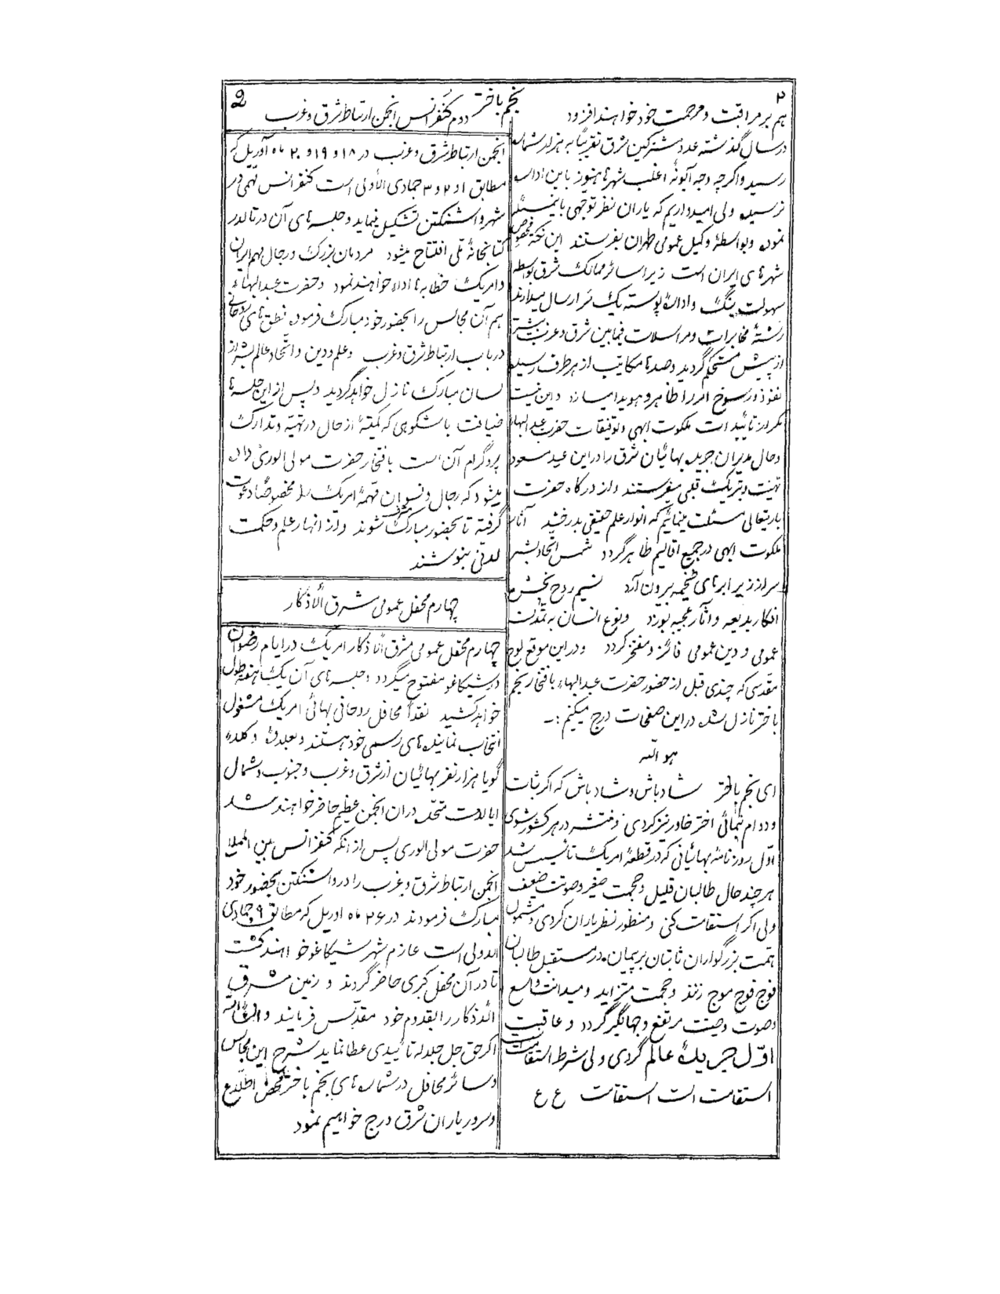 ۲
نجم باختر
2
هم بر مراقبت و مرحمت خود خواهند افزود
در سال گذشته عدد مشترکین شرق تقریباً به هزار شماره
رسید و اگرچه وجه آبونهٔ اغلب شهرها هنوز باین اداره
نرسیده ولی امیدواریم که یاران نظر توجهی باینمسئله
نموده و بواسطهٔ وکیل عمومی طهران بفرستند این نکته مخصوص
شهرهای ایران است زیرا سائر ممالک شرق بواسطه
سهولت بینگ و ادارهٔ پوسته یک سر ارسال میدارند
رشتهٔ مخابرات و مراسلات فیمابین شرق و غرب بیشتر
از پیش مستحکم گردید و صدها مکاتیب از هر طرف رسیده
نفوذ و رسوخ امر را ظاهر و هویدا میسازد و این نیست
مگر از تأییدات ملکوت ابهی و توفیقات حضرت عبدالبهاء
و حال مدیران جریده بهائیان شرق را در این عید سعود
تهنیت و تبریک قلبی میفرستند و از درگاه حضرت
باریتعالی مسئلت مینمائیم که انوار علم حقیقی بدرخشد آثار
ملکوت ابهی در جمیع اقالیم ظاهر گردد شمس اتحاد بشر
سر از زیر ابرهای ضخیمه بیرون آرد نسیم روح بخش
افکار بدیعه و آثار عجیبه بوزد و نوع انسان به تمدن
عمومی و دین عمومی فائز و مفتخر گردد و در این موقع لوح
مقدسی که چندی قبل از حضور حضرت عبدالبهاء بافتخار نجم
باختر نازل شده در این صفحات درج میکنیم :-
هو الله
ای نجم باختر شاد باش و شاد باش که اگر ثبات
و دوام نمائی اختر خاور نیز گردی و منتشر در هر کشور شوی
اول روزنامهٔ بهائیانی که در قطعهٔ امریک تأسیس شد
هر چند حال طالبان قلیل و حجمت صغیر و صوتت ضعیف
ولی اگر استقامت کنی و منظور نظر یاران گردی و مشمول
همت بزرگواران ثابتان بر پیمان در مستقبل طالبان
فوج فوج موج زنند و حجمت متزاید و میدانت واسع
و صوت و صیتت مرتفع و جهانگیر گردد و عاقبت
اول جریدهٔ عالم گردی ولی شرط استقامت است
استقامت است استقامت ع ع
دوم کنفرانس انجمن ارتباط شرق و غرب
انجمن ارتباط شرق و غرب در ۱۸ و ۱۹ و ۲۰ ماه آوریل که
مطابق ۱ و ۲ و ۳ جمادی الأولی است کنفرانس مهمی در
شهر واشنگتن تشکیل نماید و جلسه‌های آن در تالار
کتابخانهٔ ملی افتتاح میشود مردمان بزرگ و رجال مهم ایران
و امریک خطابه‌ها اداء خواهند نمود و حضرت عبدالبهاء
هم آن مجالس را بحضور خود مبارک فرموده نطق‌های روحانی
در باب ارتباط شرق و غرب و علم و دین و اتحاد عالم بشر از
لسان مبارک نازل خواهد گردید و پس از این جلسه‌ها
ضیافت باشکوهی که کمیتهٔ از حال در تهیه و تدارک
پروگرام آن است بافتخار حضرت مولی الوری داده
میشود که رجال و نسوان مهمهٔ امریک را مخصوصاً دعوت
گرفته تا بحضور مبارک مشرف شوند و از انهار علم و حکمت
لدنی بنوشند
چهارم محفل عمومی مشرق الأذکار
چهارم محفل عمومی مشرق الأذکار امریک در ایام رضوان
در شیکاغو مفتوح میگردد و جلسه‌های آن یک هفته طول
خواهد کشید نقداً محافل روحانی بهائی امریک مشغول
انتخاب نماینده‌های رسمی خود هستند و بعلاوهٔ وکلاء
گویا هزار نفر بهائیان از شرق و غرب و جنوب و شمال
ایالات متحده در آن انجمن عظیم حاضر خواهند شد
حضرت مولی الوری پس از آنکه کنفرانس بین المللی
انجمن ارتباط شرق و غرب را در واشنگتن بحضور خود
مبارک فرمودند در ۲۶ ماه اوریل که مطابق ۹ جمادی
الاولی است عازم شهر شیکاغو خواهند گشت
تا در آن محفل کبری حاضر گردند و زمین مشرق
الأذکار را بقدوم خود مقدس فرمایند و انشاءالله
اگر حق جل جلاله تأییدی عطا نماید شرح این مجالس
و سائر محافل در شماره‌های نجم باختر محض اطلاع
و سرور یاران شرق درج خواهیم نمود